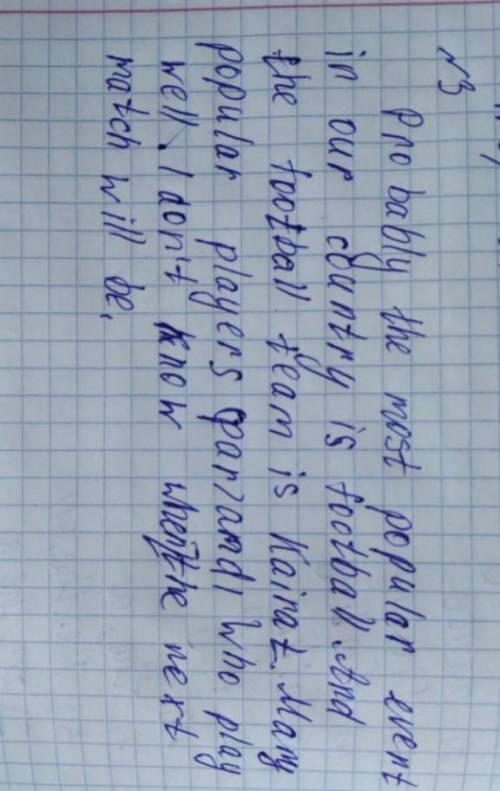 №3
Probably the most popular event
in our country is football. And
the football team is Kairat. Many
popular players who play
well. I don't know when the next
match will be,